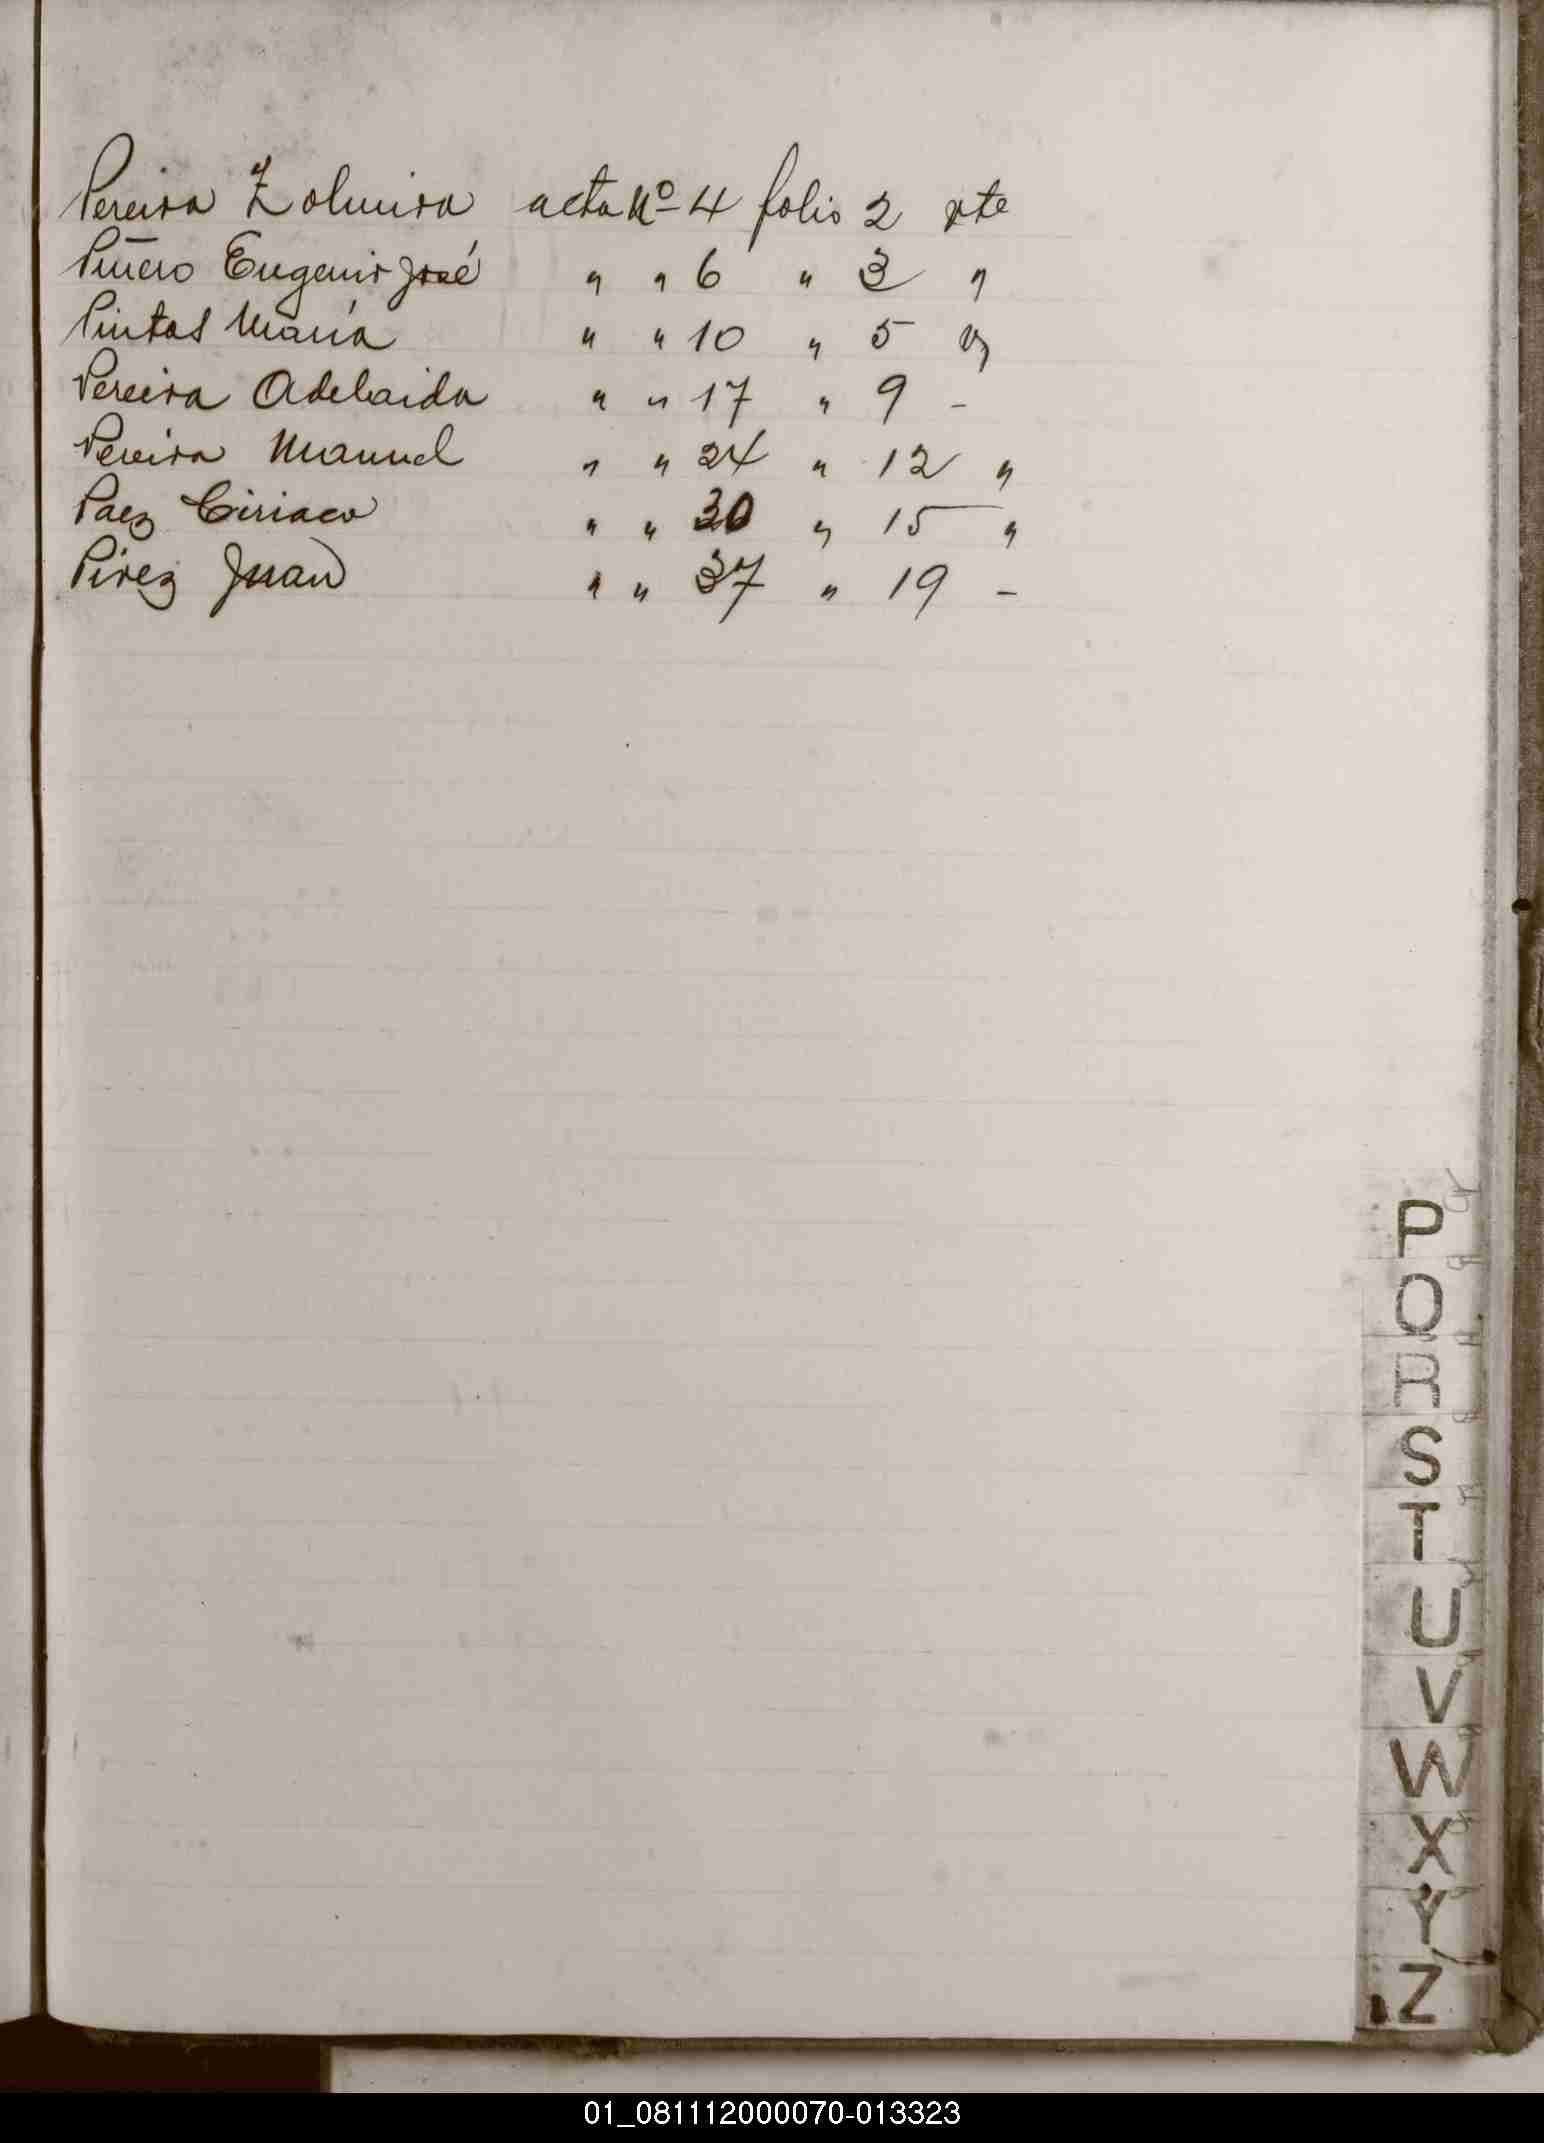 Pereira Zolmira acta Nº 4 folio 2 vte
Piñero Eugenio José " " 6 " 3 "
Pintos María " " 10 " 5 "
Pereira Adelaida " " 17 " 9 -
Pereira Manuel " " 24 " 12 "
Paez Ciriaco " " 30 " 15 "
Pirez Juan " " 37 " 19 -
P
Q
R
S
T
U
V
W
X
Y
Z
01_081112000070-013323